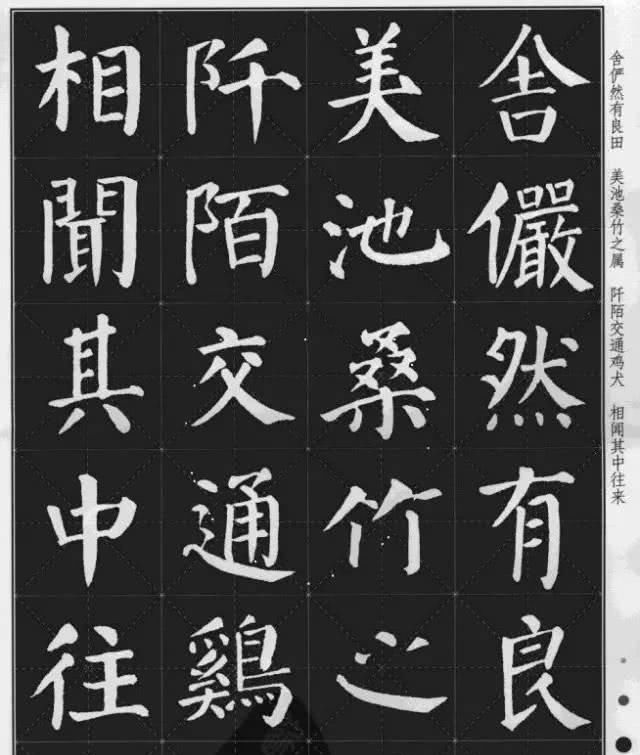 舍儼然有良
美池桑竹之
阡陌交通鷄
相聞其中往
舍俨然有良田 美池桑竹之属 阡陌交通鸡犬 相闻其中往来